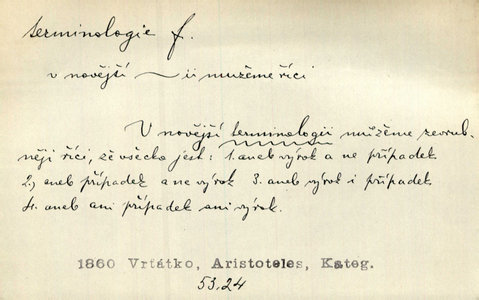 terminologie f.
v novější ~ii můžeme říci
V novější terminologii můžeme zevrub-
něji říci, že všecko jest: 1. aneb výrok a ne případek
2., aneb případek a ne výrok 3. aneb výrok i případek
4. aneb ani případek ani výrok.
1860 Vrťátko, Aristoteles, Kateg.
53.24